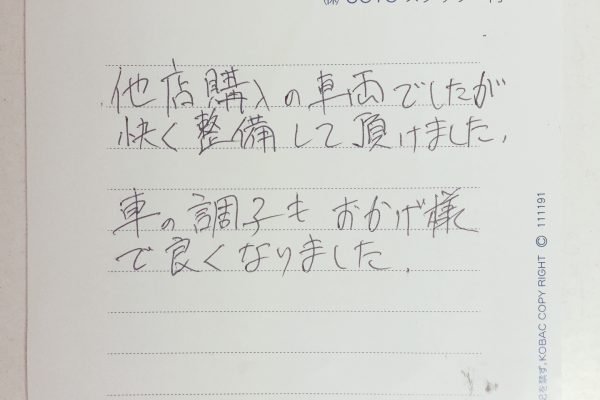 他店購入の車両でしたが
快く整備して頂けました。
車の調子もおかげ様
で良くなりました。
記を禁ず。KOBAC COPY RIGHT © 111191